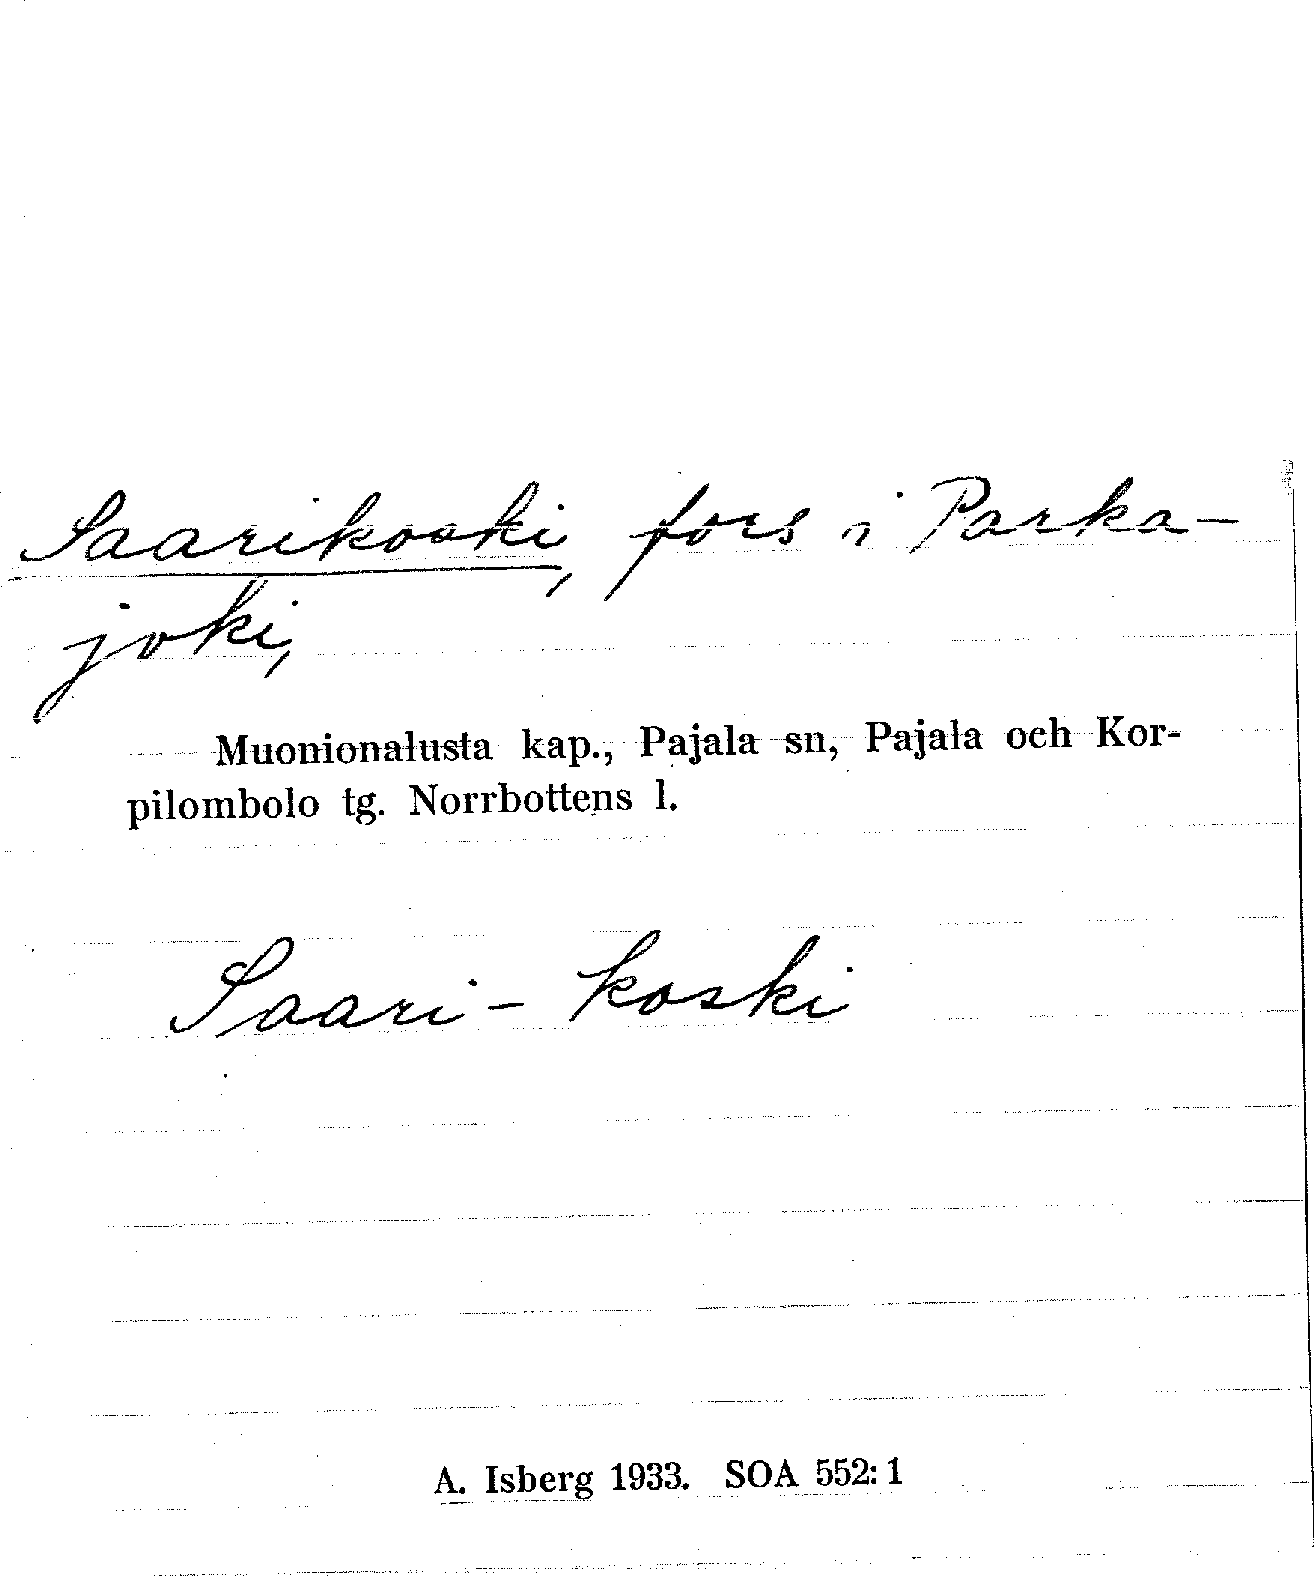 Saarikoski, fors i Parka-
joki,
Muonionalusta kap., Pajala sn, Pajala och Kor-
pilombolo tg. Norrbottens l.
Saari-koski
A. Isberg 1933. SOA 552:1